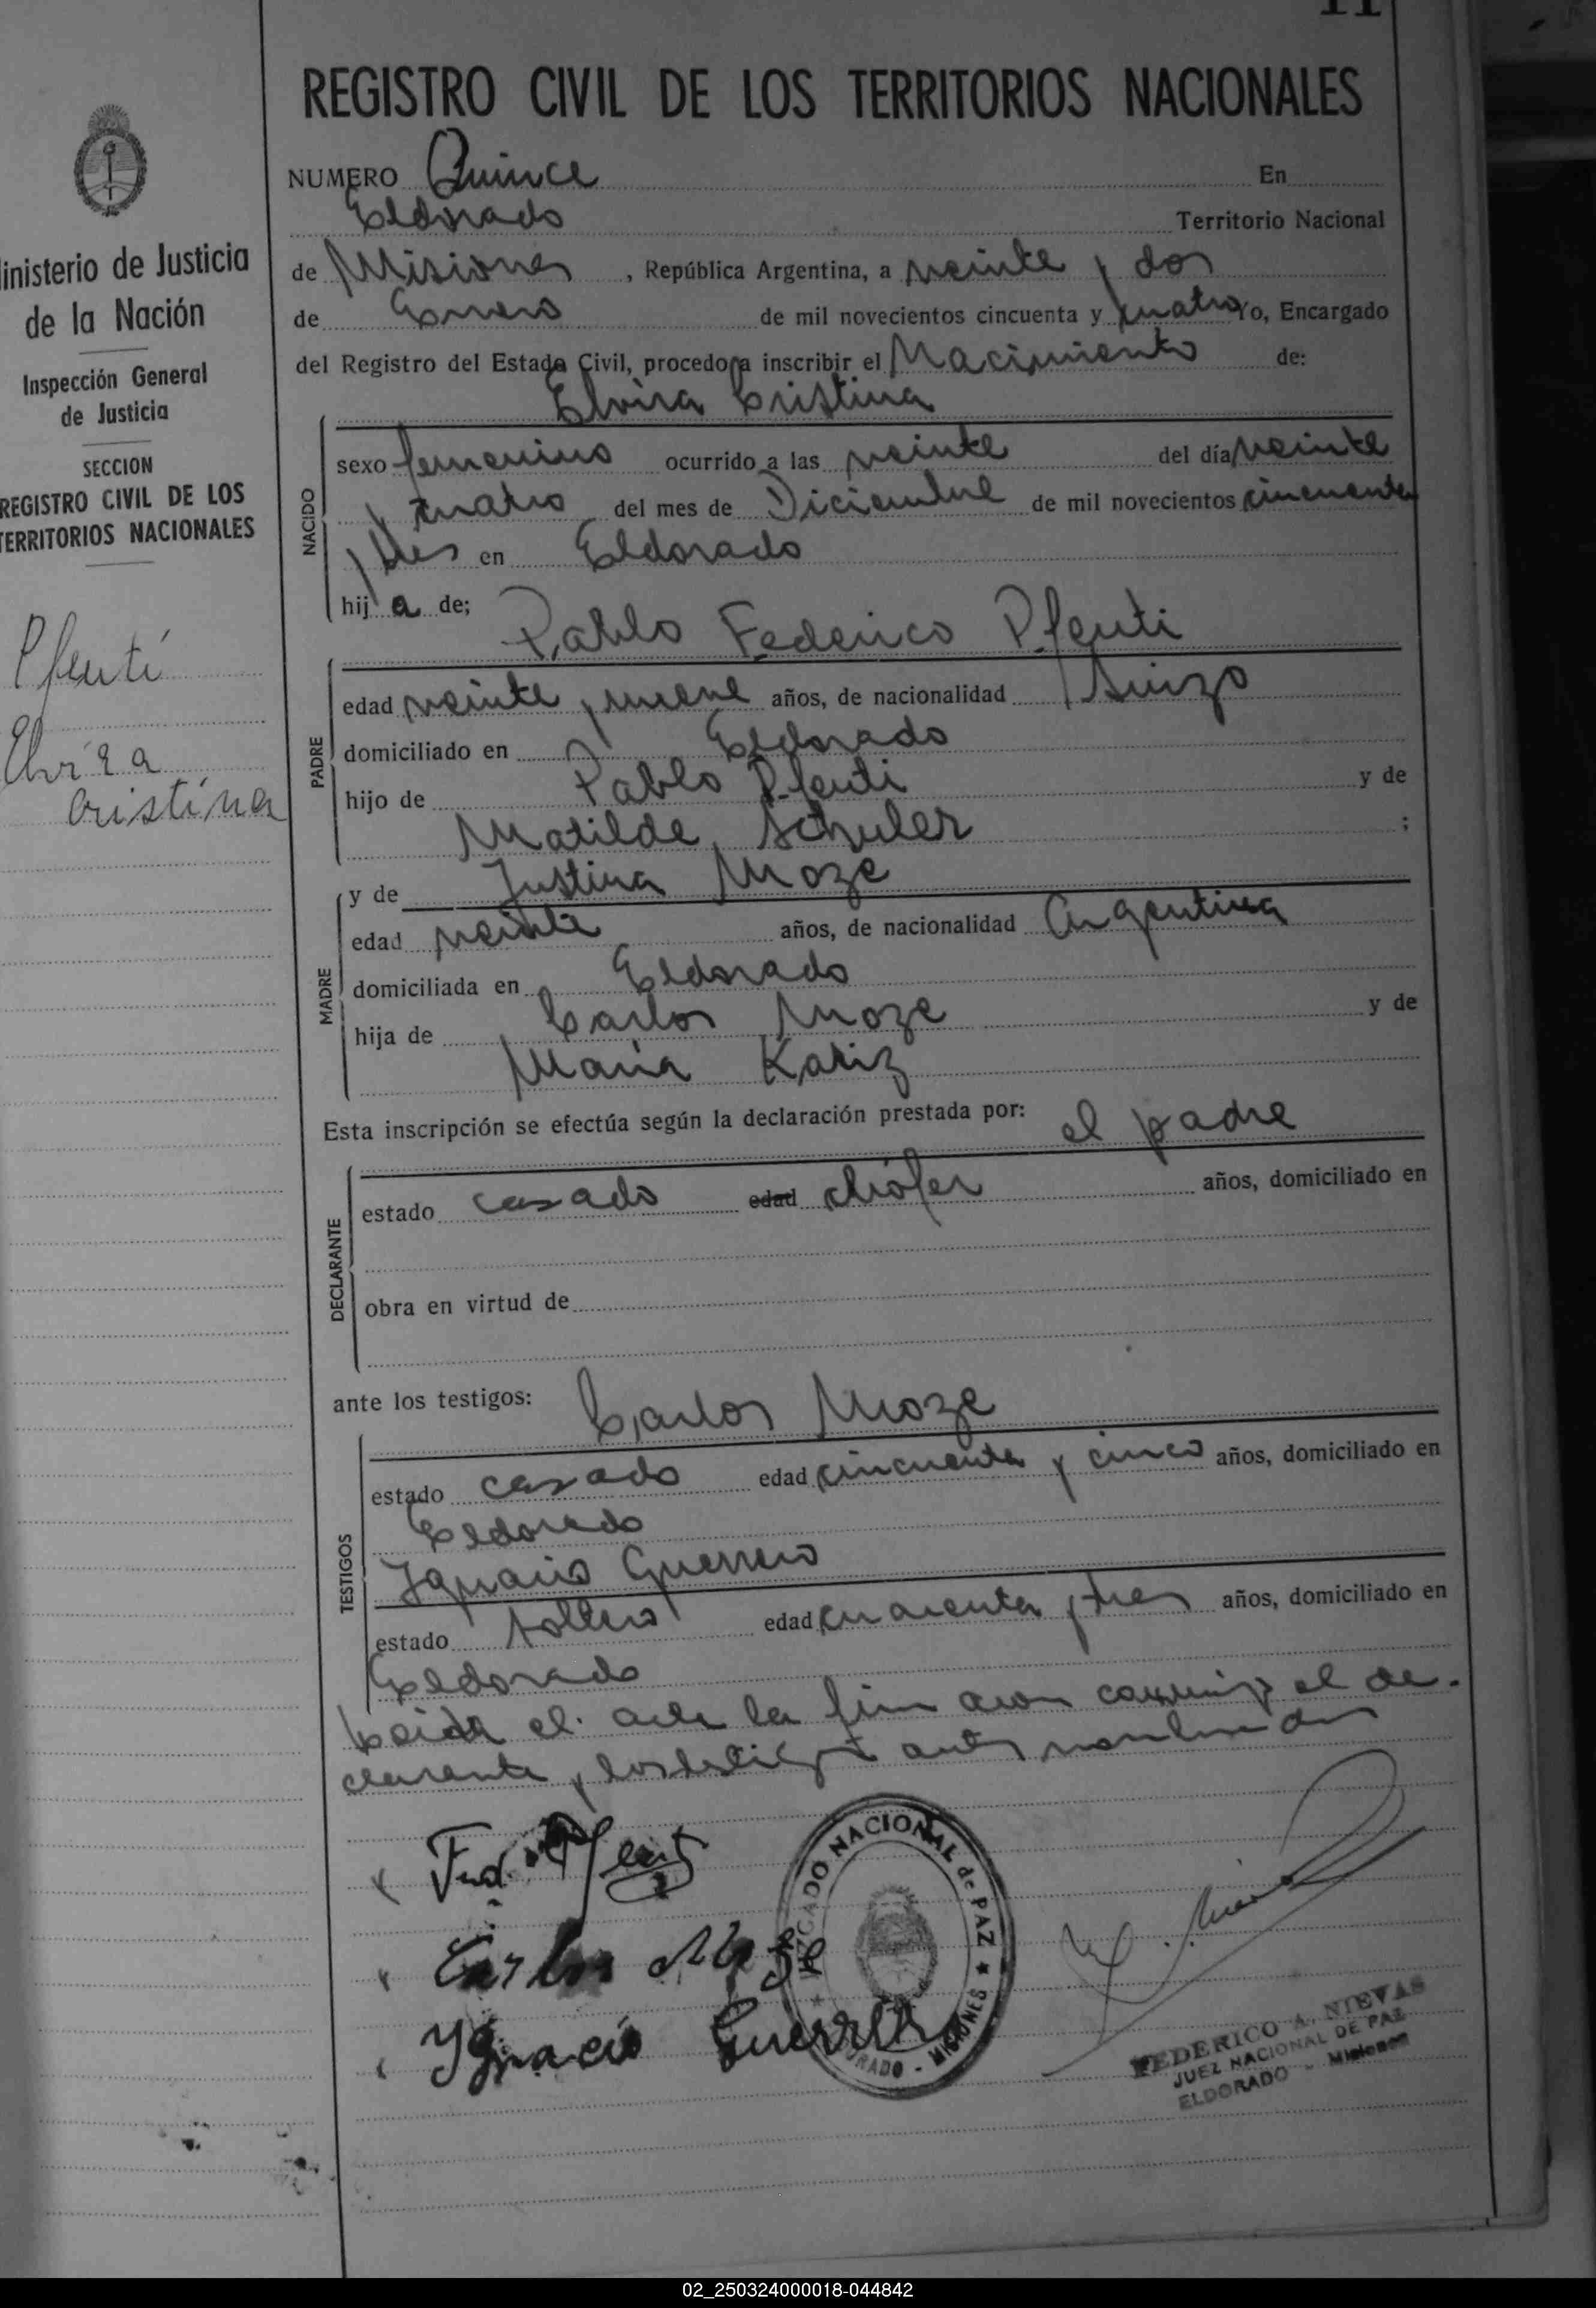 11
REGISTRO CIVIL DE LOS TERRITORIOS NACIONALES
NUMERO Quince En
Eldorado Territorio Nacional
de Misiones, República Argentina, a veinte y dos
de Enero de mil novecientos cincuenta y cuatro Yo, Encargado
del Registro del Estado Civil, procedo a inscribir el Nacimiento de:
Elvira Cristina
NACIDO
sexo femenino ocurrido a las veinte del día veinte
y cuatro del mes de Diciembre de mil novecientos cincuenta
y tres en Eldorado
hij a de;
Pablo Federico Pfenti
PADRE
edad veinte y nueve años, de nacionalidad Suizo
domiciliado en Eldorado
hijo de Pablo Pfenti y de
Matilde Schuler ;
y de Justina Moze
MADRE
edad veinte años, de nacionalidad Argentina
domiciliada en Eldorado
hija de Carlos Moze y de
Maria Kariz
Esta inscripción se efectúa según la declaración prestada por: el padre
DECLARANTE
estado casado edad chófer años, domiciliado en
obra en virtud de
ante los testigos: Carlos Moze
TESTIGOS
estado casado edad cincuenta y cinco años, domiciliado en
Eldorado
Ignacio Guerrero
estado soltero edad cuarenta y tres años, domiciliado en
Eldorado
Leida el acta la firmaron conmigo el de-
clarante y los testigos antes nombrados
Carlos Moze
Ygnacio Guerrero
JUZGADO NACIONAL de PAZ
ELDORADO - MISIONES
FEDERICO A. NIEVAS
JUEZ NACIONAL DE PAZ
ELDORADO - Misiones
Ministerio de Justicia
de la Nación
Inspección General
de Justicia
SECCION
REGISTRO CIVIL DE LOS
TERRITORIOS NACIONALES
Pfenti
Elvira
Cristina
02_250324000018-044842